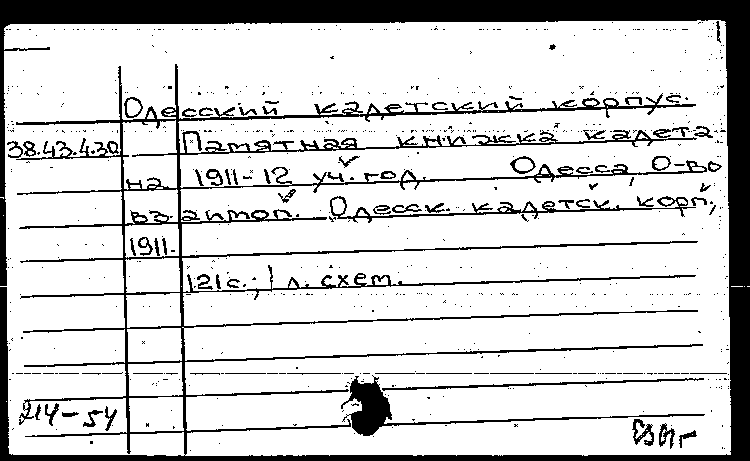 Одесский кадетский корпус.
38.43.4.30 Памятная книжка кадета
на 1911-12 уч. год. Одесса, О-во
взаимоп. Одесск. кадетск. корп.,
1911.
121с.; 1 л. схем.
214-54